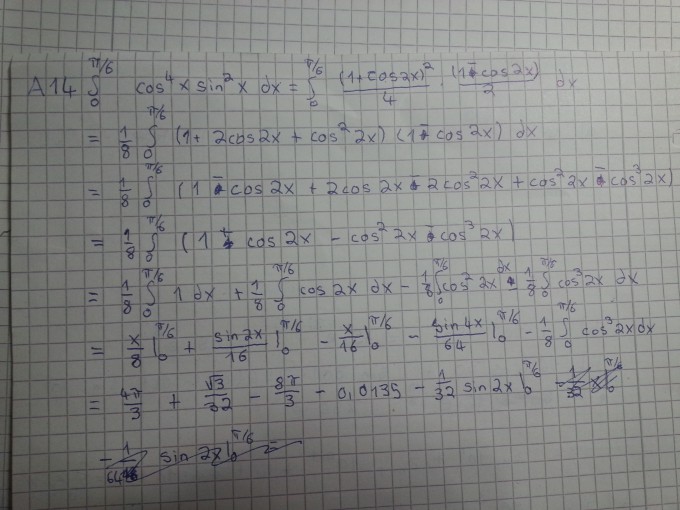 A14 ∫₀^{π/6} cos⁴x sin²x dx = ∫₀^{π/6} (1+cos2x)²/4 · (1-cos2x)/2 dx
= 1/8 ∫₀^{π/6} (1+ 2cos2x + cos²2x) (1-cos2x) dx
= 1/8 ∫₀^{π/6} (1 - cos2x + 2cos2x - 2cos²2x + cos²2x - cos³2x)
= 1/8 ∫₀^{π/6} (1 + cos2x - cos²2x - cos³2x)
= 1/8 ∫₀^{π/6} 1 dx + 1/8 ∫₀^{π/6} cos2x dx - 1/8 ∫₀^{π/6} cos²2x dx - 1/8 ∫₀^{π/6} cos³2x dx
= x/8 |₀^{π/6} + sin2x/16 |₀^{π/6} - x/16 |₀^{π/6} - sin4x/64 |₀^{π/6} - 1/8 ∫₀^{π/6} cos³2x dx
= 4π/3 + √3/32 - 8π/3 - 0,0135 - 1/32 sin2x |₀^{π/6}